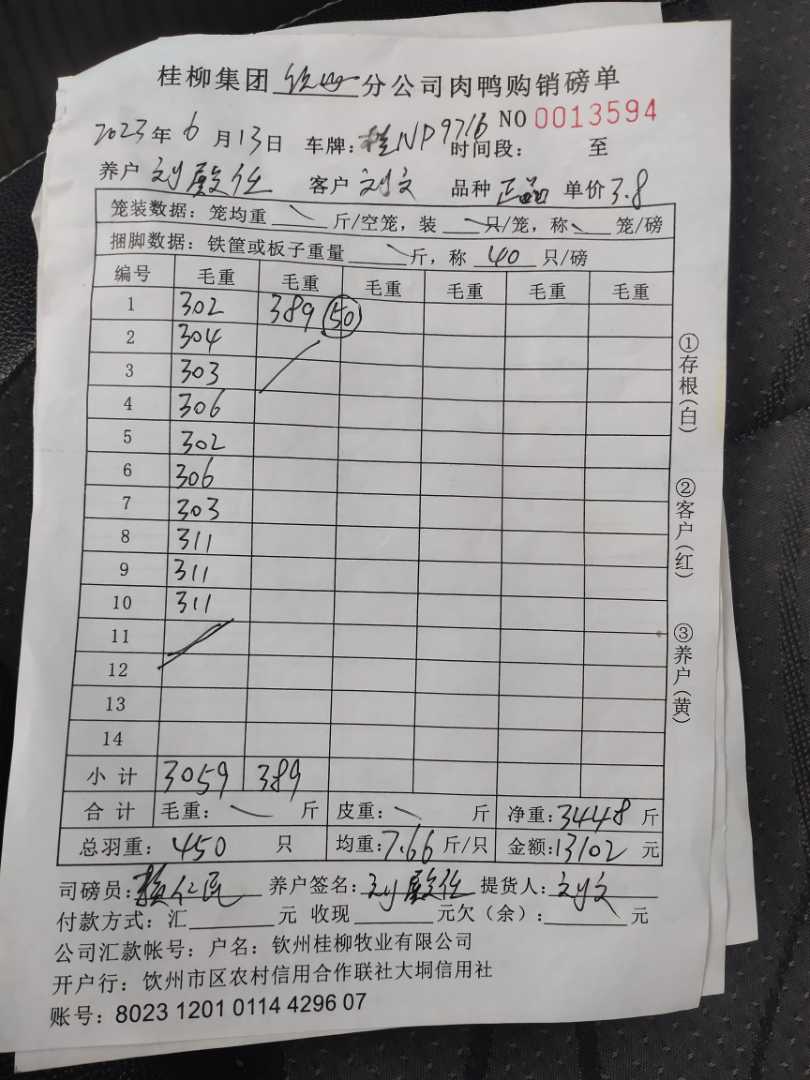 桂柳集团 钦州 分公司肉鸭购销磅单
NO 0013594
2023年 6 月 13 日 车牌:桂NP9716 时间段: 至
养户 刘殿任 客户 刘文 品种 正品 单价 3.8
笼装数据: 笼均重 斤/空笼, 装 只/笼, 称 笼/磅
捆脚数据: 铁筐或板子重量 斤, 称 40 只/磅
编号 毛重 毛重 毛重 毛重 毛重 毛重
1 302 389 (50)
2 304
3 303
4 306
5 302
6 306
7 303
8 311
9 311
10 311
11
12
13
14
小计 3059 389
合计 毛重: 斤 皮重: 斤 净重:3448 斤
总羽重: 450 只 均重:7.66 斤/只 金额:13102 元
司磅员: 养户签名:刘殿任 提货人:刘文
付款方式: 汇 元 收现 元欠(余): 元
公司汇款帐号: 户名: 钦州桂柳牧业有限公司
开户行: 饮州市区农村信用合作联社大垌信用社
账号: 8023 1201 0114 4296 07
①存根(白)
②客户(红)
③养户(黄)